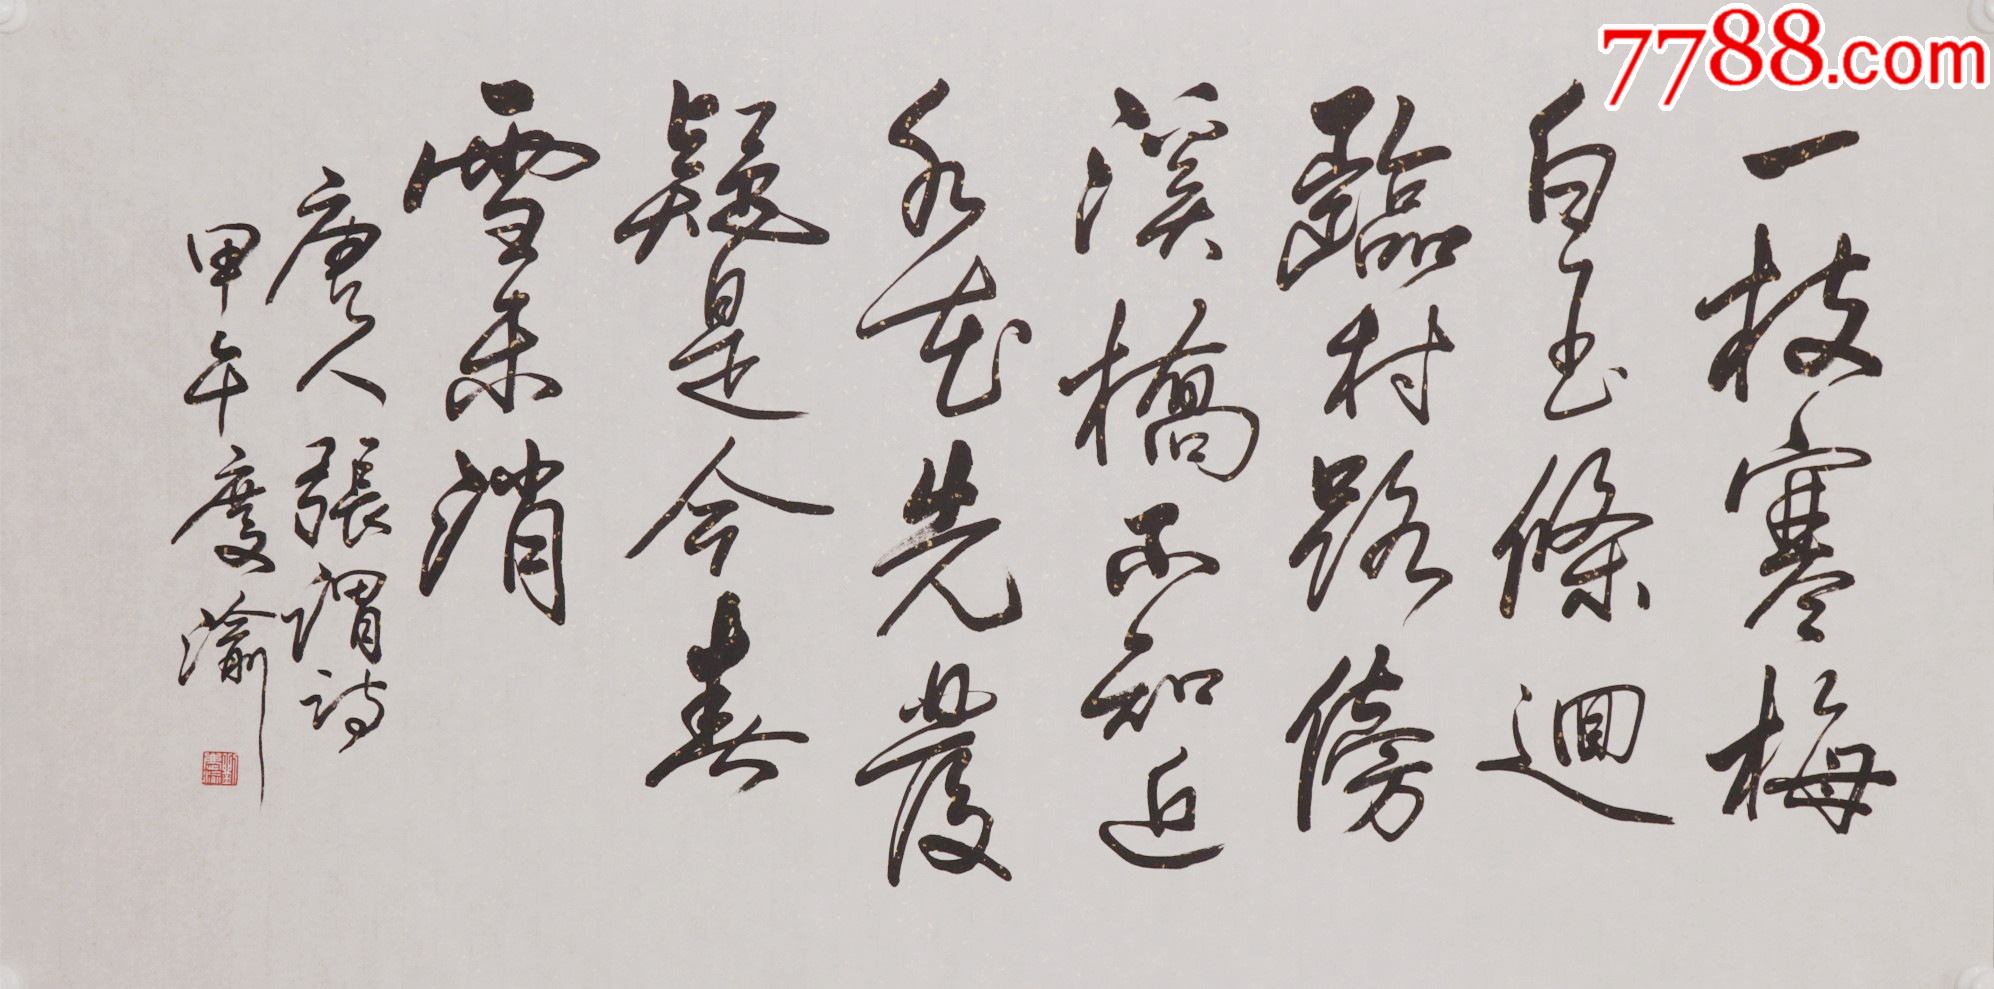 一枝寒梅
白玉條迴
臨村路傍
溪橋不知近
水花先發
疑是今春
雪未消
唐人張謂詩
甲午度瀹
7788.com